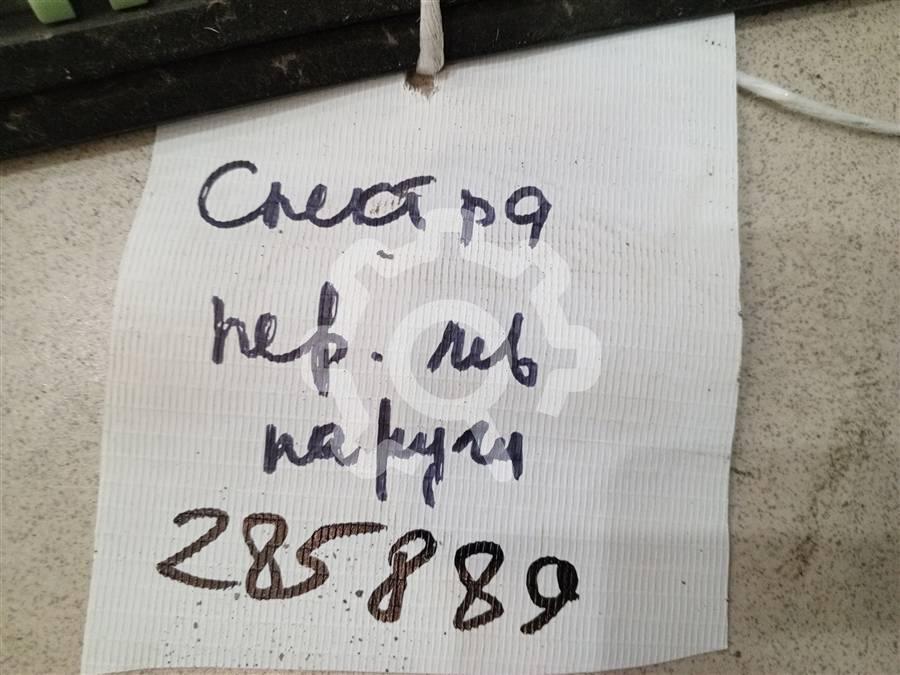 Спектра
пер. лев
наружн
285889